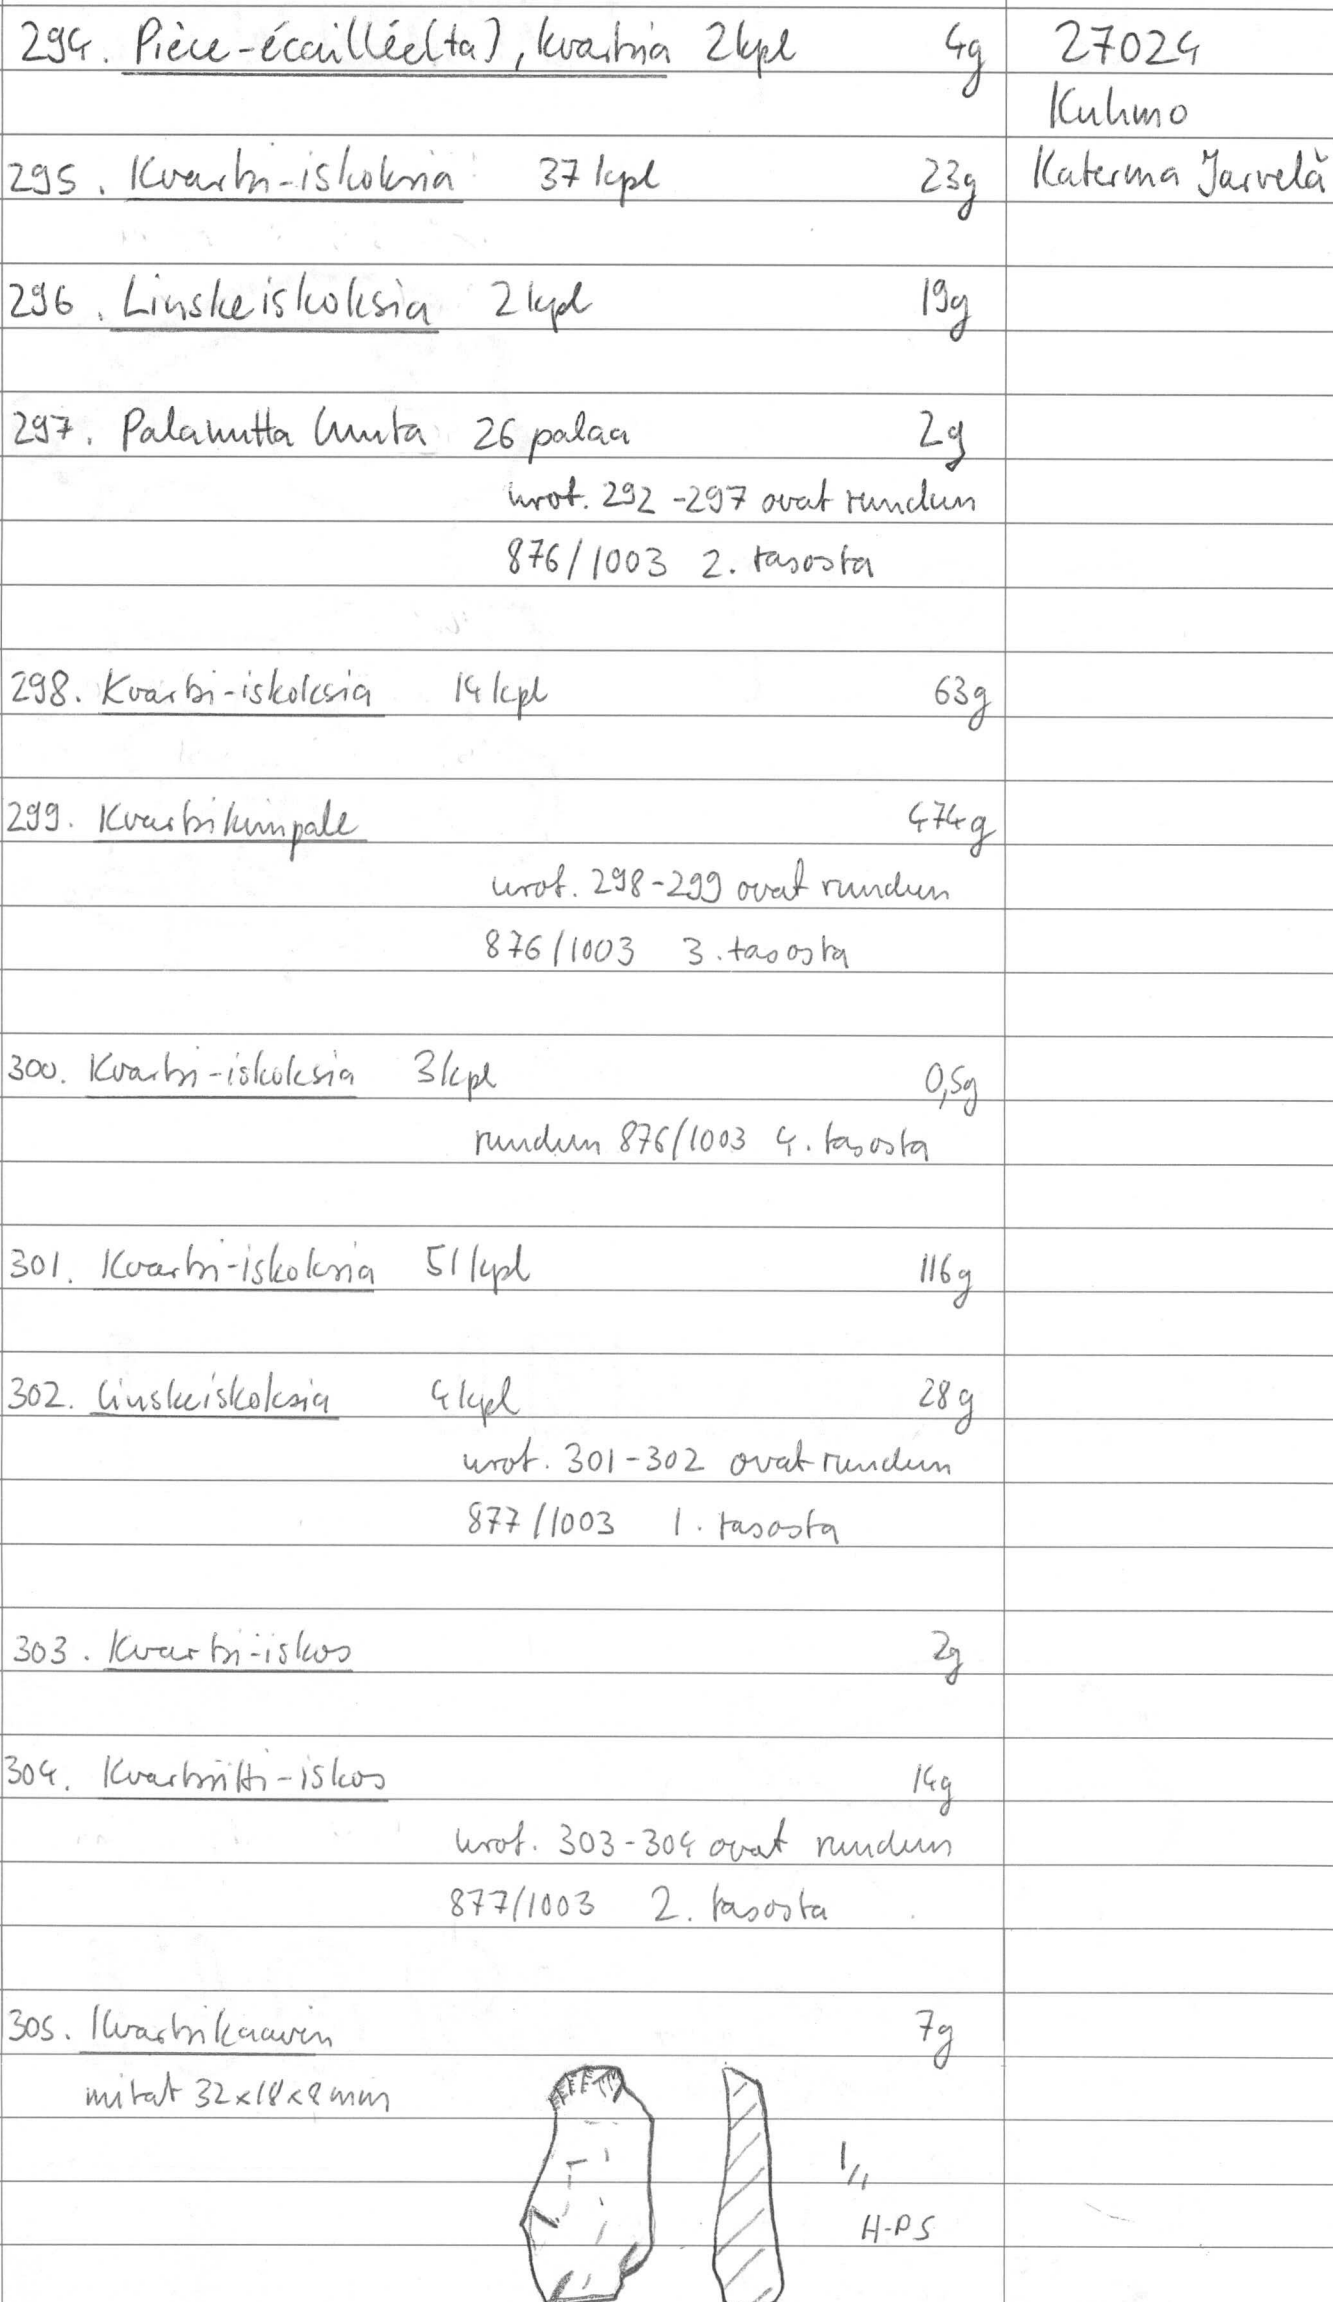 294. Pièce-écaillée(ta), kvartsia 2 kpl 4g
27024
Kuhmo
295. Kvartsi-iskoksia 37 kpl 23g
Katerma Järvelä
296. Liuskeiskoksia 2 kpl 19g
297. Palanutta luuta 26 palaa 2g
nrot. 292-297 ovat ruudun
876/1003 2. tasosta
298. Kvartsi-iskoksia 14 kpl 63g
299. Kvartsikimpale 474g
nrot. 298-299 ovat ruudun
876/1003 3. tasosta
300. Kvartsi-iskoksia 3 kpl 0,5g
ruudun 876/1003 4. tasosta
301. Kvartsi-iskoksia 51 kpl 116g
302. Liuskeiskoksia 4 kpl 28g
nrot. 301-302 ovat ruudun
877/1003 1. tasosta
303. Kvartsi-iskos 2g
304. Kvartsiitti-iskos 14g
nrot. 303-304 ovat ruudun
877/1003 2. tasosta
305. Kvartsikaavin 7g
mitat 32x18x8 mm
1/1
H-PS